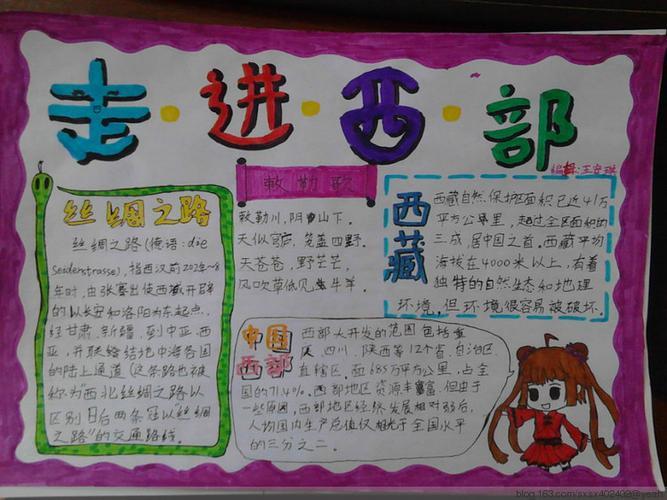 走·进·西·部
编辑:王安琪
丝绸之路
丝绸之路(德语:die
Seidenstrasse),指西汉前202年~8
年时,由张骞出使西域开辟
的以长安和洛阳为东起点,
经甘肃、新疆,到中亚、西
亚,并联络结地中海各国
的陆上通道(这条路也被
称为"西北丝绸之路以
区别日后两条冠以丝绸
之路"的交通路线。
敕勒歌
敕勒川,阴山下。
天似穹庐,笼盖四野。
天苍苍,野茫茫,
风吹草低见牛羊。
西藏
西藏自然保护区面积已近41万
平方公里,超过全区面积的
三成,居中国之首。西藏平均
海拔在4000米以上,有着
独特的自然生态和地理
环境,但环境很容易被破坏.
中国
西部
西部大开发的范围包括重
庆、四川、陕西等12个省、自治区、
直辖区.面685万平方公里,占全
国的71.4%。西部地区资源丰富,但由于
一些原因,西部地区经济发展相对弱后,
人均国内生产总值仅相当于全国水平
的三分之二。
blog.163.com/sxsx402409@yest